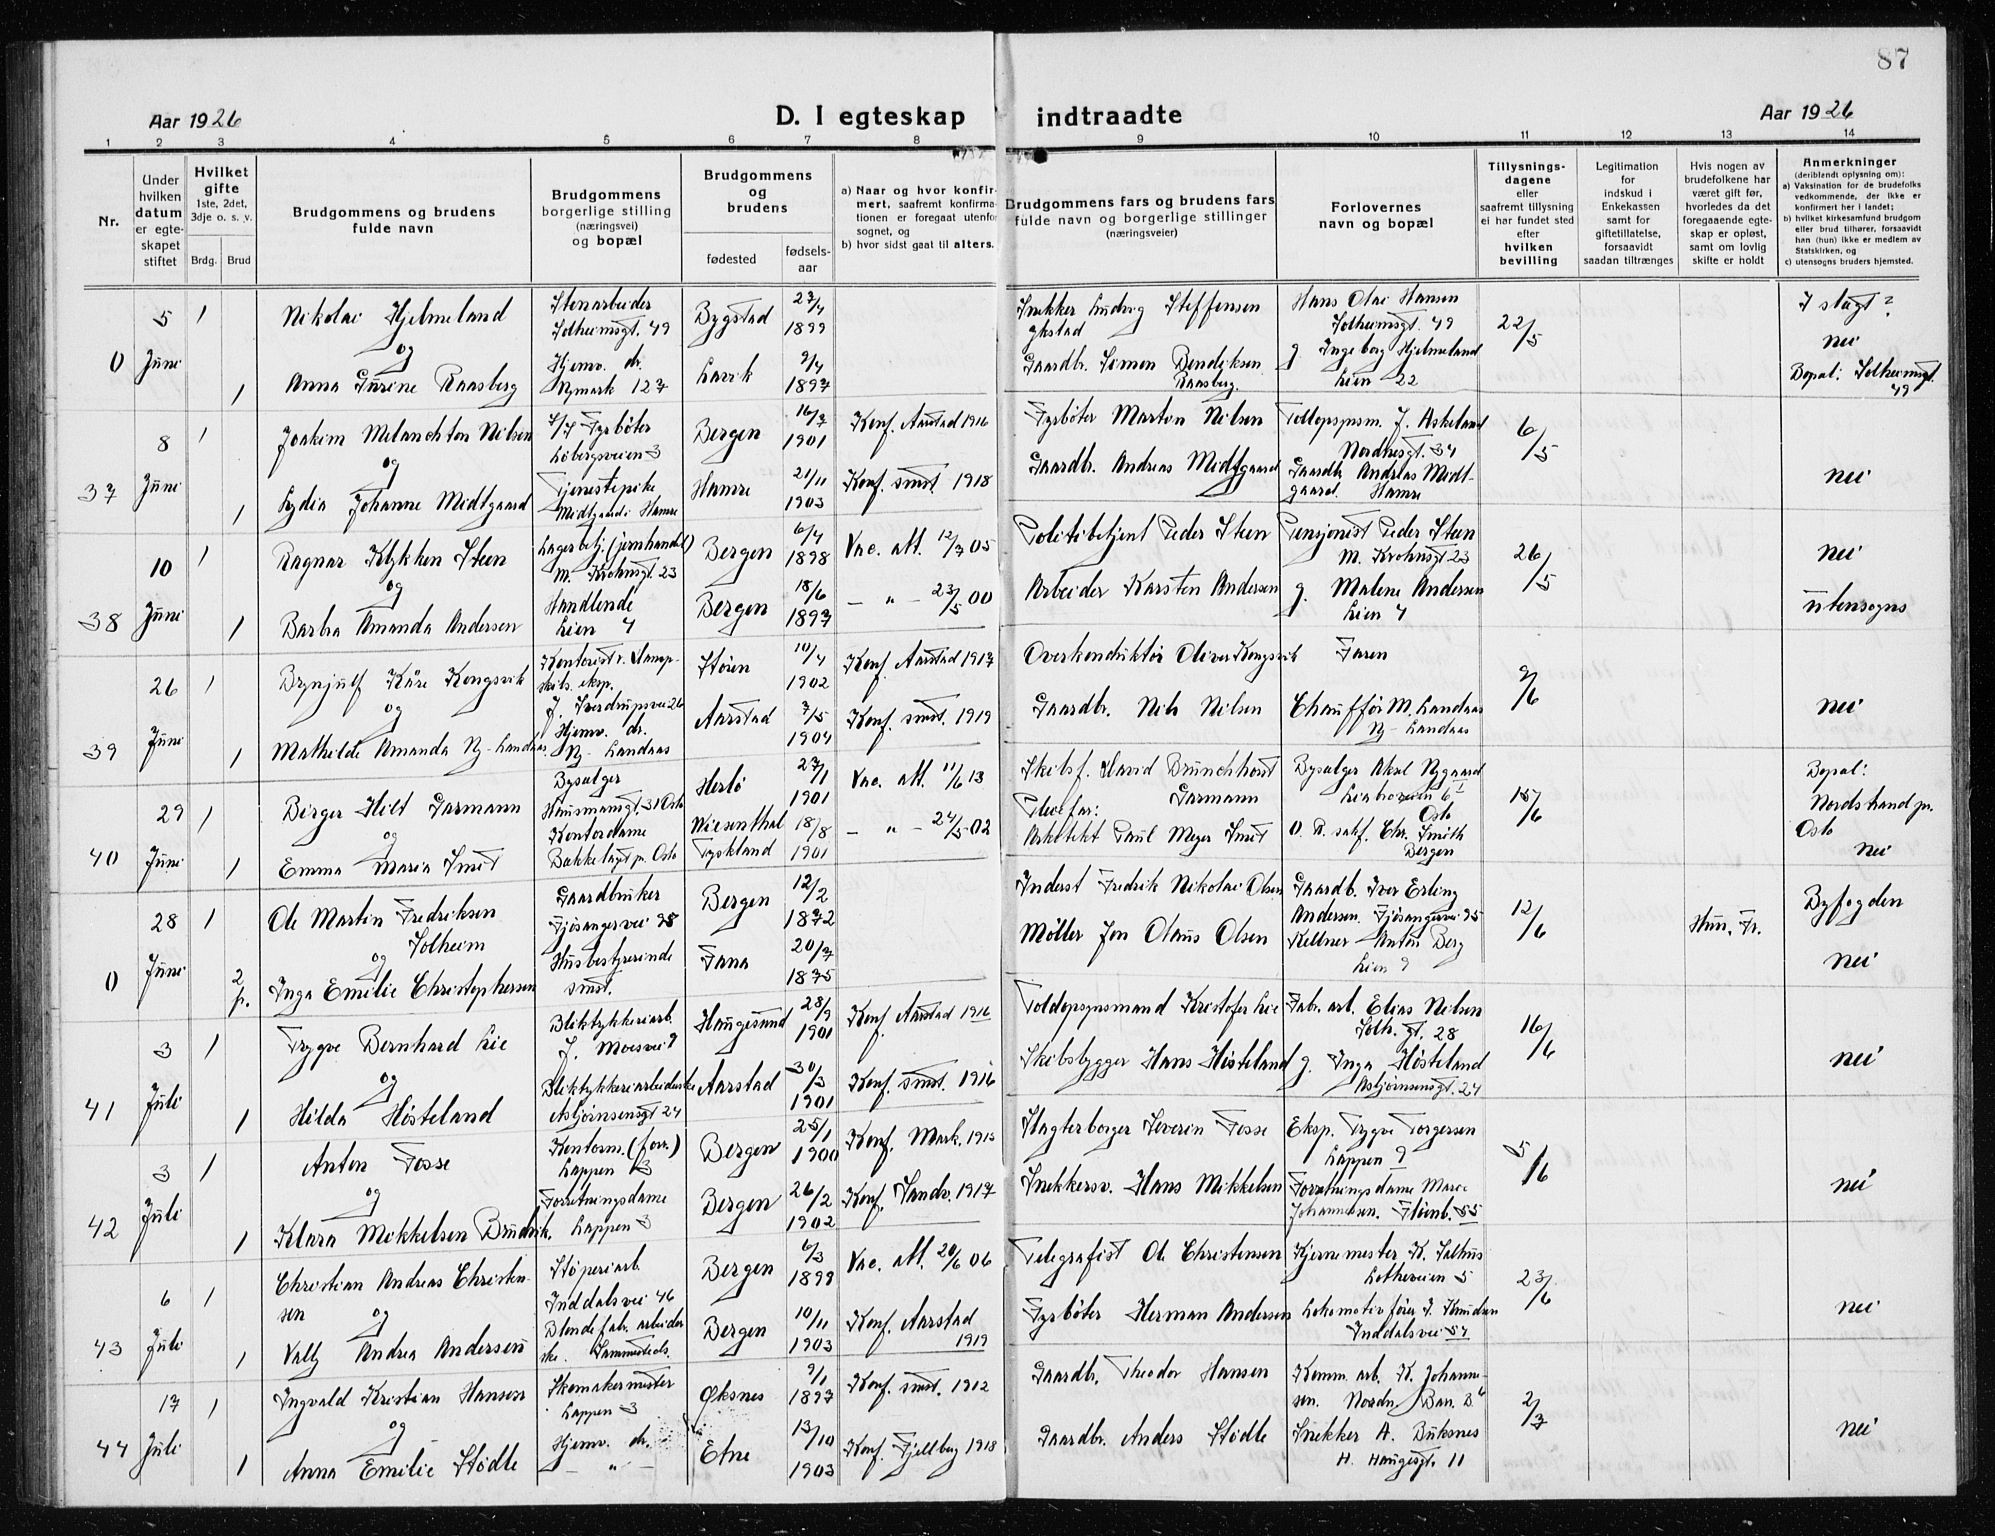 87
Aar 1926
D. I egteskap indtraadte
Aar 1926
1 2 3 4 5 6 7 8 9 10 11 12 13 14
Nr.
Under hvilken datum er egteskapet stiftet
Hvilket gifte
1ste, 2det, 3dje o. s. v.
Brdg. Brud
Brudgommens og brudens fulde navn
Brudgommens borgerlige stilling (næringsvei) og bopæl
Brudgommens og brudens
fødested
fødselsaar
a) Naar og hvor konfirmert, saafremt konfirmationen er foregaat utenfor sognet, og
b) hvor sidst gaat til alters.
Brudgommens fars og brudens fars fulde navn og borgerlige stillinger (næringsveier)
Forlovernes navn og bopæl
Tillysningsdagene eller saafremt tillysning ei har fundet sted efter hvilken bevilling
Legitimation for indskud i Enkekassen samt for giftetillatelse, forsaavidt saadan tiltrænges
Hvis nogen av brudefolkene har været gift før, hvorledes da det foregaaende egteskap er opløst, samt om lovlig skifte er holdt
Anmerkninger
(deriblandt oplysning om):
a) Vaksination for de brudefolks vedkommende, der ikke er konfirmert her i landet;
b) hvilket kirkesamfund brudgom eller brud tilhører, forsaavidt han (hun) ikke er medlem av Statskirken, og
c) utensogns bruders hjemsted.
0 5 Juni 1 Nikolai Hjelmeland Stenarbeider Solheimsgt. 49 Bygstad 27/4 1899 Snekker Ludvig Steffensen Hans Olai Hansen Solheimsgt. 49 22/5 I slagt?
og nei
1 Anna Gurine Raasberg Hjemv. dr. Nymark 127 Lavik 9/4 1897 Gaardbr. Simon Bendiksen Raasberg. g. Ingeborg Hjelmeland Lien 22 Bopæl: Solheimsgt. 49
37 8 Juni 1 Joakim Melanchton Nilsen Fyrbøter Løbergsveien 3 Bergen 16/7 1901 Konf. Aarstad 1916 Fyrbøter Marton Nilsen Toldopsynsm. J. Askeland Nordnesgt. 34 6/5
og
1 Lydia Johanne Midtgaard Tjenestepike Midtgaard i Hamre Hamre 21/11 1903 Konf. smst. 1918 Gaardbr. Andreas Midtgaard Gaardb. Andreas Midtgaard. Hamre nei
38 10 Juni 1 Ragnar Klykken Steen Lagerbetj. (jernhandel) M. Krohnsgt. 23 Bergen 6/4 1898 Vac. att. 12/7 05 Politibetjent Peder Steen Pensjonist Peder Steen M. Krohnsgt 23 26/5 nei
og
1 Barbra Amanda Andersen Handlende Lien 4 Bergen 18/6 1897 – " – 23/5 00 Arbeider Karsten Andersen g. Malene Andersen Lien 4 utensogns
39 26 Juni 1 Brynjulf Kåre Kongsvik Kontorist v. Dampskibs. eksp. J. Sverdrupsvei 26 Støren 10/4 1902 Konf. Aarstad 1917 Overkonduktør Oliver Kongsvik Faren 9/6
og
1 Mathilde Amanda Ny-Landaas. Hjemv. dr. Ny-Landaas Aarstad 7/5 1904 Konf. smst. 1919 Gaardbr. Nils Nilsen Chauffør M. Landaas Ny-Landaas nei
40 29 Juni 1 Birger Hild Garmann Bysælger Hausmannsgt. 31 Oslo Herlø 27/1 1901 Vac. att. 11/6 13 Skibsf. David Brunchhorst Garmann Bysælger Aksel Nygaard Oslo 15/6 Bopæl: Nordstrand pr. Oslo
og
1 Emma Maria Smit Kontordame Bækkelaget pr. Oslo Wiesenthal Tyskland 18/8 1901 – " – 24/5 02 Pleiefar: Arkitekt Paul Meyer Smit O. R. sakf. Chr. Smith Bergen nei
0 28 Juni 1 Ole Martin Fredriksen Solheim Gaardbruker Fjøsangervei 95 Bergen 12/2 1872 Inderst Fredrik Nikolai Olsen Gaardb. Iver Erling Andersen Fjøsangervei 95 12/6 Byfogden
og
2 fr. Inga Emilie Christophersen Husbestyrerinde smst. Fana 20/7 1875 Møller Jon Olaus Olsen Kellner Anton Berg Lien 9 Hun, Fr. nei
41 3 Juli 1 Trygve Bernhard Lie Bliktrykkeriarb. J. Moesvei 9 Haugesund 28/9 1901 Konf. Aarstad 1916 Toldopsynsmand Kristofer Lie Fab. arb. Elias Nilsen Solh. gt. 28 16/6
og
1 Hilda Høsteland Bliktrykkeriarbeiderske Asbjørnsensgt 24 Aarstad 30/3 1901 Konf. smst. 1916 Skibsbygger Hans Høsteland g. Inga Høsteland Asbjørnsensgt. 24 nei
42 3 Juli 1 Anton Fosse Kontorm. (forr.) Lappen 3 Bergen 25/1 1900 Konf. Mark. 1915 Slagterborger Severin Fosse Eksp. Trygve Torgersen Lappen 9 5/6
og
1 Klara Mikkelsen Brudvik. Forretningsdame Lappen 3 Bergen 26/2 1902 Konf. Sandv. 1917 Snekkersv. Hans Mikkelsen Forretningsdame Marie Johannesen. 55 nei
43 6 Juli 1 Christian Andreas Christensen Støperiarb. Inndalsvei 46 Bergen 6/3 1899 Vac. Att. 20/6 06 Telegrafist Ole Christensen Kjernemester K. Salhus Lotheveien 5 23/6
og
1 Vally Andrea Andersen Blondefab. arbeiderske. Bergen 10/11 1903 Konf. Aarstad 1919 Fyrbøter Herman Andersen Lokomotivfører I. Knudsen Inddalsvei 54 nei
44 17 Juli 1 Ingvald Kristian Hansen Skomakermester Lappen 3 Øksnes 9/1 1897 Konf. smst. 1912 Gaardbr. Theodor Hansen Komm. arb. K. Johannesen. 2/7
og
1 Anna Emilie Stødle Hjemv. dr. – " – Etne 13/10 1903 Konf. Fjellberg 1918 Gaardbr. Anders Stødle Snekker A. Buksnes H. Haugesgt. 11 nei